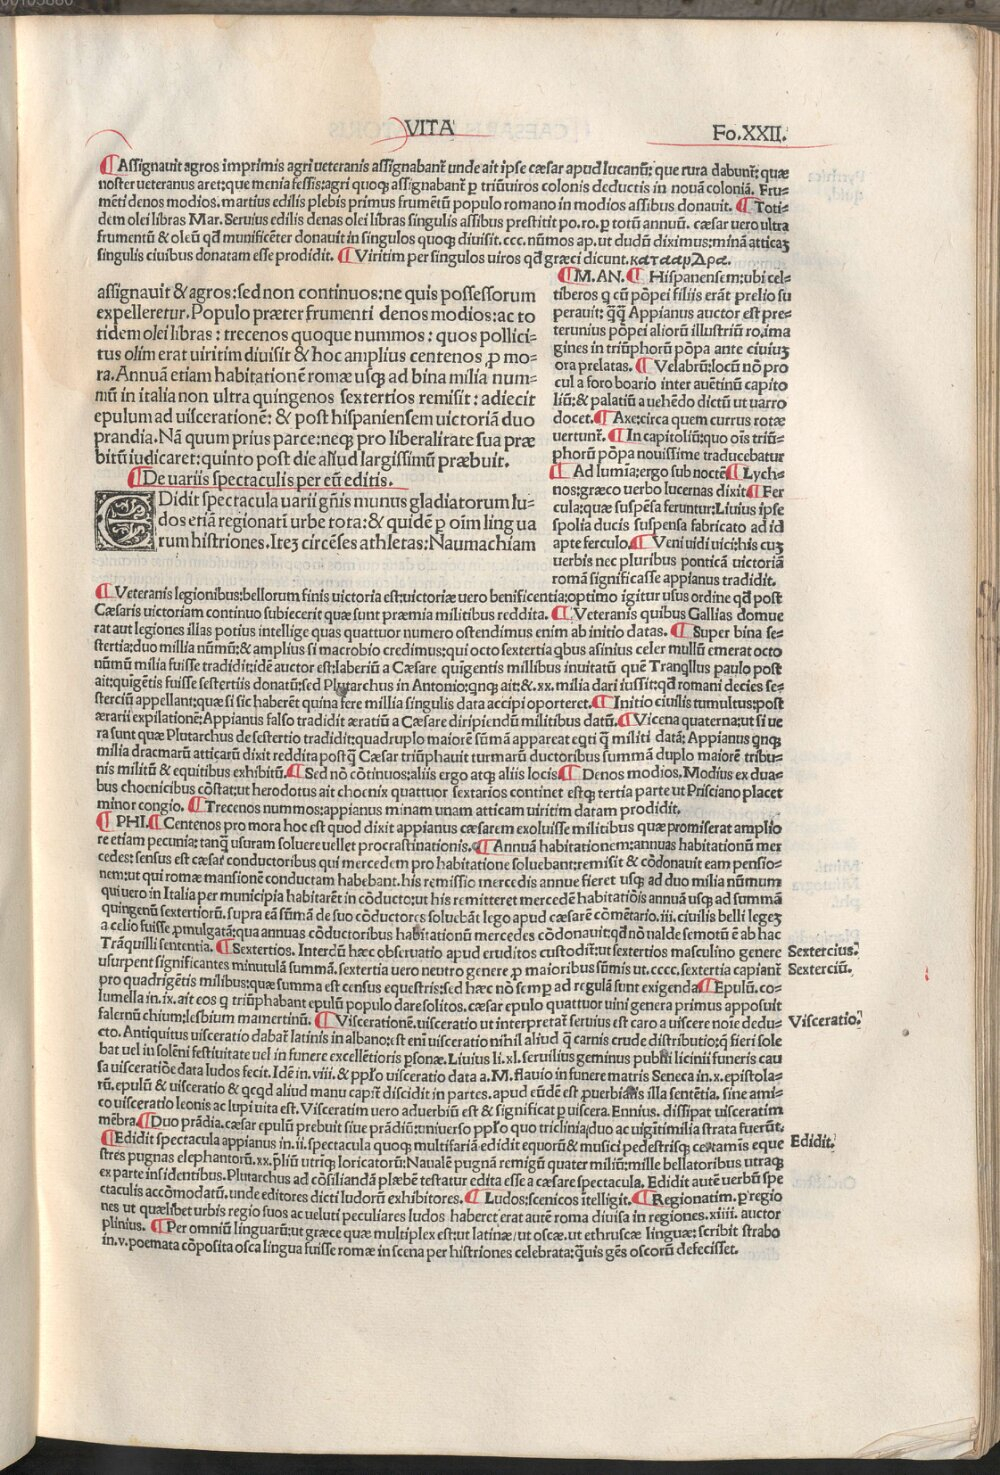 VITA
Fo.XXII.
¶Assignauit agros imprimis agri ueteranis assignabant̃ unde ait ipse cæsar apud lucanũ: que rura dabunt̃: quæ
noster ueteranus aret: que menia fessis: agri quoq; assignabant̃ ꝑ triũuiros colonis deductis in nouã coloniã. Fru-
mẽti denos modios. martius edilis plebis primus frumẽtũ populo romano in modios assibus donauit. ¶Toti-
dem olei libras Mar. Seruius edilis denas olei libras singulis assibus prestitit po.ro.ꝑ totũ annuũ. cæsar uero ultra
frumentũ & oleũ qd̃ munificẽter donauit in singulos quoq; diuisit. ccc. nũmos ap. ut dudũ diximus: minã atticaʒ
singulis ciuibus donatam esse prodidit. ¶Viritim per singulos uiros qd̃ græci dicunt. καταανΔρα.
assignauit & agros: sed non continuos: ne quis possessorum
expelleretur. Populo præter frumenti denos modios: ac to
tidem olei libras: trecenos quoque nummos: quos pollici-
tus olim erat uiritim diuisit & hoc amplius centenos ꝓ mo-
ra. Annuã etiam habitationẽ romæ usq; ad bina milia num-
mũ in italia non ultra quingenos sextertios remisit: adiecit
epulum ad uiscerationẽ: & post hispaniensem uictoriã duo
prandia. Nã quum prius parce: neq; pro liberalitate sua præ
bitũ iudicaret: quinto post die aliud largissimũ præbuit.
¶De uariis spectaculis per eũ editis.
EDidit spectacula uarii gñis munus gladiatorum lu-
dos etiã regionatĩ urbe tota: & quidẽ ꝑ oĩm lingua
rum histriones. Iteʒ circẽses athletas: Naumachiam
¶M.AN. ¶Hispanensem: ubi cel-
tiberos q cũ põpei filiis erãt prelio su
perauit: q̃q̃ Appianus auctor est pre-
terunius põpei aliorũ illustriũ ro. ima
gines in triũphorũ põpa ante ciuiuʒ
ora prelatas. ¶Velabrũ: locũ nõ pro
cul a foro boario inter auẽtinũ capito
liũ: & palatiũ a uehẽdo dictũ ut uarro
docet. ¶Axe: circa quem currus rotæ
uertunt̃. ¶In capitoliũ: quo oĩs triũ-
phorũ põpa nouissime traducebatur
¶Ad lumĩa: ergo sub noctẽ ¶Lych-
nos: græco uerbo lucernas dixit ¶Fer
cula: quæ suspẽsa feruntur: Liuius ipse
spolia ducis suspensa fabricato ad id
apte ferculo. ¶Veni uidi uici: his cuʒ
uerbis nec pluribus ponticã uictoriã
romã significasse appianus tradidit.
¶Veteranis legionibus: bellorum finis uictoria est: uictoriæ uero benificentia: optimo igitur usus ordine qd̃ post
Cæsaris uictoriam continuo subiecerit quæ sunt præmia militibus reddita. ¶Veteranis quibus Gallias domue
rat aut legiones illas potius intellige quas quattuor numero ostendimus enim ab initio datas. ¶Super bina se-
stertia: duo millia nũmũ: & amplius si macrobio credimus: qui octo sextertia qbus asinius celer mullũ emerat octo
nũmũ milia fuisse tradidit: idẽ auctor est: laberiũ a Cæsare quigentis millibus inuitatũ quẽ Tranqllus paulo post
ait: quĩgẽtis fuisse sestertiis donatũ: sed Plutarchus in Antonio: qnq; ait: &. xx. milia dari iussit: qd̃ romani decies se-
sterciũ appellant: quæ si sic haberẽt quina fere millia singulis data accipi oporteret. ¶Initio ciuilis tumultus: post
ærarii expilationẽ: Appianus falso tradidit æratiũ a Cæsare diripiendũ militibus datũ. ¶Vicena quaterna: ut si ue
ra sunt quæ Plutarchus de sestertio tradidit: quadruplo maiorẽ sũmã appareat eqti q̃ militi datã: Appianus qnq;
milia dracmarũ atticarũ dixit reddita postq̃ Cæsar triũphauit turmarũ ductoribus summã duplo maiorẽ tribu-
nis militũ & equitibus exhibitũ. ¶Sed nõ cõtinuos: aliis ergo atq; aliis locis ¶Denos modios. Modius ex dua-
bus choenicibus cõstat: ut herodotus ait choenix quattuor sextarios continet estq; tertia parte ut Prisciano placet
minor congio. ¶Trecenos nummos: appianus minam unam atticam uiritim datam prodidit.
¶PHI. ¶Centenos pro mora hoc est quod dixit appianus cæsarem exoluisse militibus quæ promiserat amplio
re etiam pecunia: tanq̃ usuram soluere uellet procrastinationis. ¶Annuã habitationem: annuas habitationũ mer
cedes: sensus est cæsar conductoribus qui mercedem pro habitatione soluebant: remisit & cõdonauit eam pensio-
nem: ut qui romæ mansionẽ conductam habebant. his remissio mercedis annue fieret usq; ad duo milia nũmum
qui uero in Italia per municipia habitarẽt in cõducto: ut his remitteret mercedẽ habitatiõis annuã usq; ad summã
quingenũ sextertiorũ. supra eã sũmã de suo cõductores soluebãt lego apud cæsarẽ cõmẽtario. iii. ciuilis belli legeʒ
a celio fuisse ꝓmulgatã: qua annuas cõductoribus habitationũ mercedes cõdonauit: qd̃ nõ ualde semotũ ẽ ab hac
Trãquilli sententia. ¶Sextertios. Interdũ hæc obseruatio apud eruditos custodit̃: ut sextertios masculino genere
usurpent significantes minutulã summã. sextertia uero neutro genere ꝓ maioribus sũmis ut. cccc. sextertia capiant̃
pro quadrigẽtis milibus: quæ summa est census equestris: sed hæc nõ semꝑ ad regulã sunt exigenda ¶Epulũ. co-
lumella in. ix. ait eos q triũphabant epulũ populo dare solitos. cæsar epulo quattuor uini genera primus apposuit
falernũ chium: lesbium mamertinũ. ¶Viscerationẽ. uisceratio ut interpretat̃ seruius est caro a uiscere noĩe dedu-
cto. Antiquitus uisceratio dabat̃ latinis in albano: est eni uisceratio nihil aliud q̃ carnis crude distributio: q̃ fieri sole
bat uel in solẽni festiuitate uel in funere excellẽtioris ꝑsonæ. Liuius li. xl. seruilius geminus publii licinii funeris cau
sa uisceratiõe data ludos fecit. Idẽ in. viii. & ppl̃o uisceratio data a. M. flauio in funere matris Seneca in. x. epistola-
rũ. epulũ & uisceratio & qcqd aliud manu capit̃ discidit in partes. apud eũdẽ est ꝓuerbialis illa sentẽtia. sine ami-
co uisceratio leonis ac lupi uita est. Visceratim uero aduerbiũ est & significat ꝑ uiscera. Ennius. dissipat uisceratim
mẽbra. ¶Duo prãdia. cæsar epulũ prebuit siue prãdiũ: uniuerso ppl̃o quo triclinia: duo ac uigĩtimilia strata fuerũt.
¶Edidit spectacula appianus in. ii. spectacula quoq; multifariã edidit equorũ & musici pedestrisq; certamĩs eque
stres pugnas elephantorũ. xx. p̃liũ utriq; loricatorũ: Naualẽ pugnã remigũ quater miliũ: mille bellatoribus utraq;
ex parte insidentibus. Plutarchus ad cõsiliandã plæbẽ testatur edita esse a cæsare spectacula. Edidit autẽ uerbũ spe
ctaculis accõmodatũ. unde editores dicti ludorũ exhibitores. ¶Ludos: scenicos ĩtelligit. ¶Regionatim. ꝑ regio
nes ut quælibet urbis regio suos ac ueluti peculiares ludos haberet erat autẽ roma diuisa in regiones. xiiii. auctor
plinius. ¶Per omniũ linguarũ: ut græce quæ multiplex est: ut latinæ/ ut oscæ. ut ethruscæ linguæ: scribit strabo
in. v. poemata cõposita osca lingua fuisse romæ in scena per histriones celebrata: q̃uis gẽs oscorũ defecisset.
Sextercius.
Sexterciũ.
Visceratio.
Edidit.